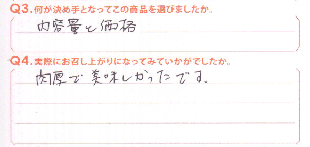 Q3.何が決め手となってこの商品を選びましたか。
内容量と価格
Q4.実際にお召し上がりになってみていかがでしたか。
肉厚で美味しかったです。